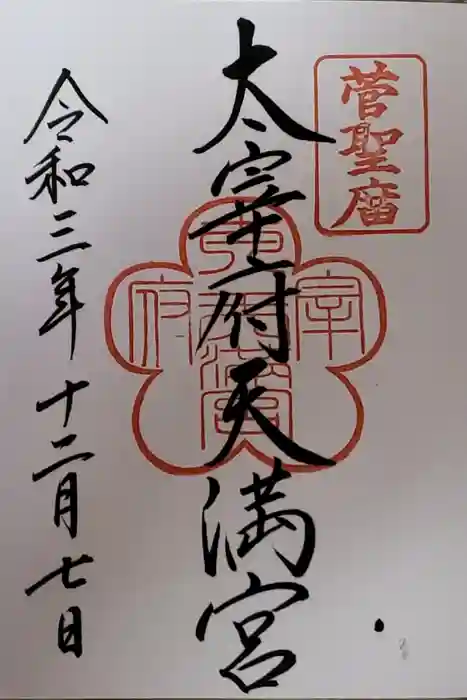 菅聖廟
太宰府天満宮
令和三年十二月七日